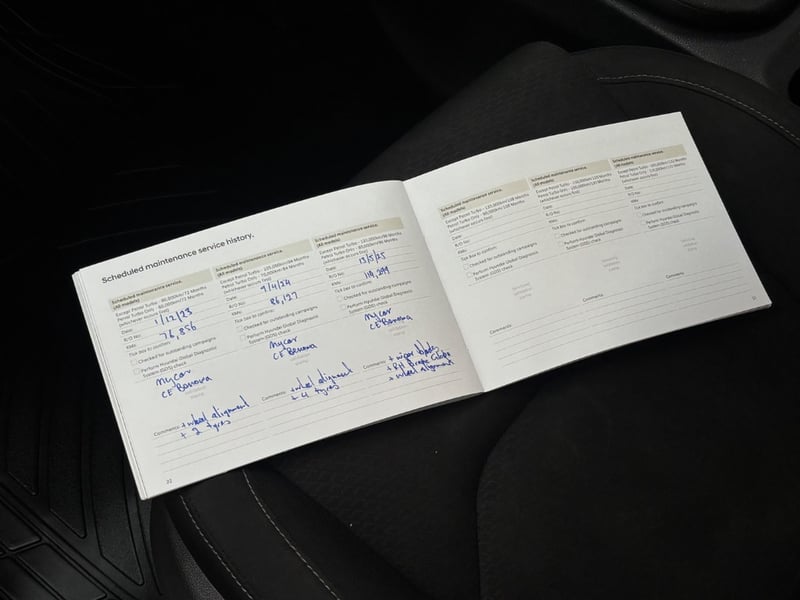 Scheduled maintenance service history.
Scheduled maintenance service.
(All models)
(whichever occurs first)
Date:
1/12/23
R/O No:
KMs:
76,856
Tick box to confirm:
Checked for outstanding campaigns
Perform Hyundai Global Diagnostic
System (GDS) check
mycar
CE Bonova
Comments: + wheel alignment
+ 2 tyres
22
Scheduled maintenance service.
(All models)
(whichever occurs first)
Date:
9/4/24
R/O No:
KMs:
86,127
Tick box to confirm:
Checked for outstanding campaigns
Perform Hyundai Global Diagnostic
System (GDS) check
mycar
CE Bonova
Comments: + wheel alignment
+ 4 tyres
Scheduled maintenance service.
(All models)
(whichever occurs first)
Date:
13/5/25
R/O No:
KMs:
119,299
Tick box to confirm:
Checked for outstanding campaigns
Perform Hyundai Global Diagnostic
System (GDS) check
mycar
CE Bonova
Comments: + wiper blades
+ wheel alignment
Scheduled maintenance service.
(All models)
(whichever occurs first)
Date:
R/O No:
KMs:
Tick box to confirm:
Checked for outstanding campaigns
Perform Hyundai Global Diagnostic
System (GDS) check
Comments:
Scheduled maintenance service.
(All models)
(whichever occurs first)
Date:
R/O No:
KMs:
Tick box to confirm:
Checked for outstanding campaigns
Perform Hyundai Global Diagnostic
System (GDS) check
Comments:
Scheduled maintenance service.
(All models)
(whichever occurs first)
Date:
R/O No:
KMs:
Tick box to confirm:
Checked for outstanding campaigns
Perform Hyundai Global Diagnostic
System (GDS) check
Comments: